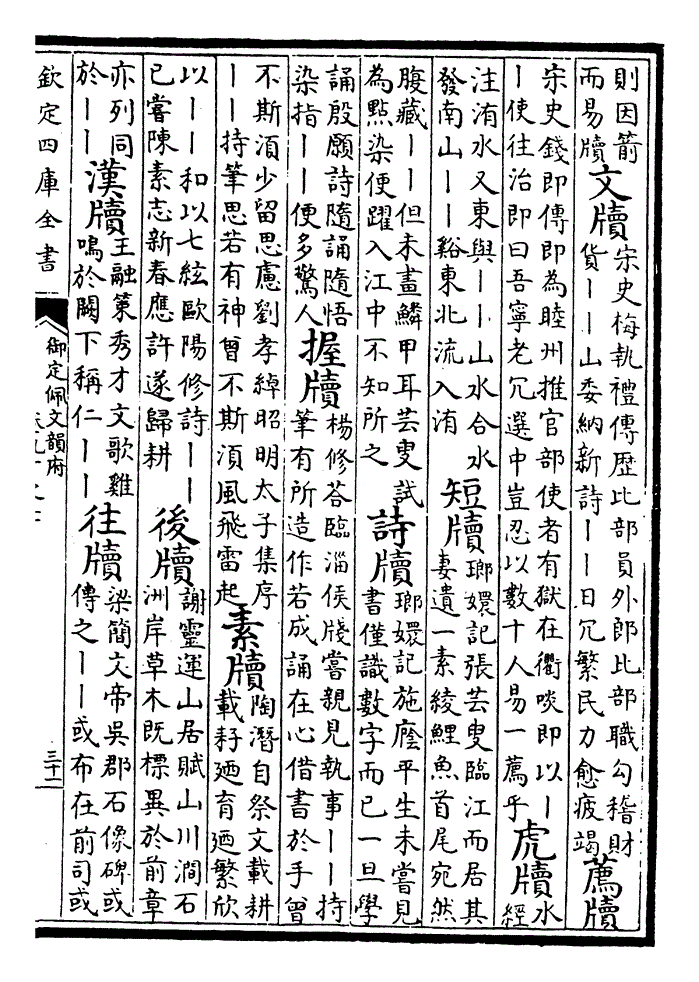 則因箭
而易牘
文牘
宋史梅執禮傳歷比部員外郎比部職勾稽財
貨——山委納新詩——日冗繁民力愈疲竭
薦牘
宋史錢即傳即為睦州推官部使者有獄在衢啖即以—
—使往治即曰吾寧老冗選中豈忍以數十人易一薦乎
虎牘
水
經
注洧水又東與——山水合水
發南山——谿東北流入洧
短牘
瑯嬛記張芸叟臨江而居其
妻遺一素綾鯉魚首尾宛然
腹藏——但未畫鱗甲耳芸叟試
為點染便躍入江中不知所之
詩牘
瑯嬛記施廕平生未嘗見
書僅識數字而已一旦學
誦殷願詩隨誦隨悟
染指——便多驚人
握牘
楊修荅臨淄侯牋嘗親見執事——持
筆有所造作若成誦在心借書於手曾
不斯湏少留思慮劉孝綽昭明太子集序
——持筆思若有神曾不斯湏風飛雷起
素牘
陶潛自祭文載耕
載耔廼育廼繁欣
以——和以七絃歐陽修詩——
已嘗陳素志新春應許遂歸耕
後牘
謝靈運山居賦山川澗石
洲岸草木既標異於前章
亦列同
於——
漢牘
王融策秀才文歌雞
鳴於闕下稱仁——
往牘
梁簡文帝吳郡石像碑或
傳之——或布在前司或
欽定四庫全書
御定佩文韻府
三十二